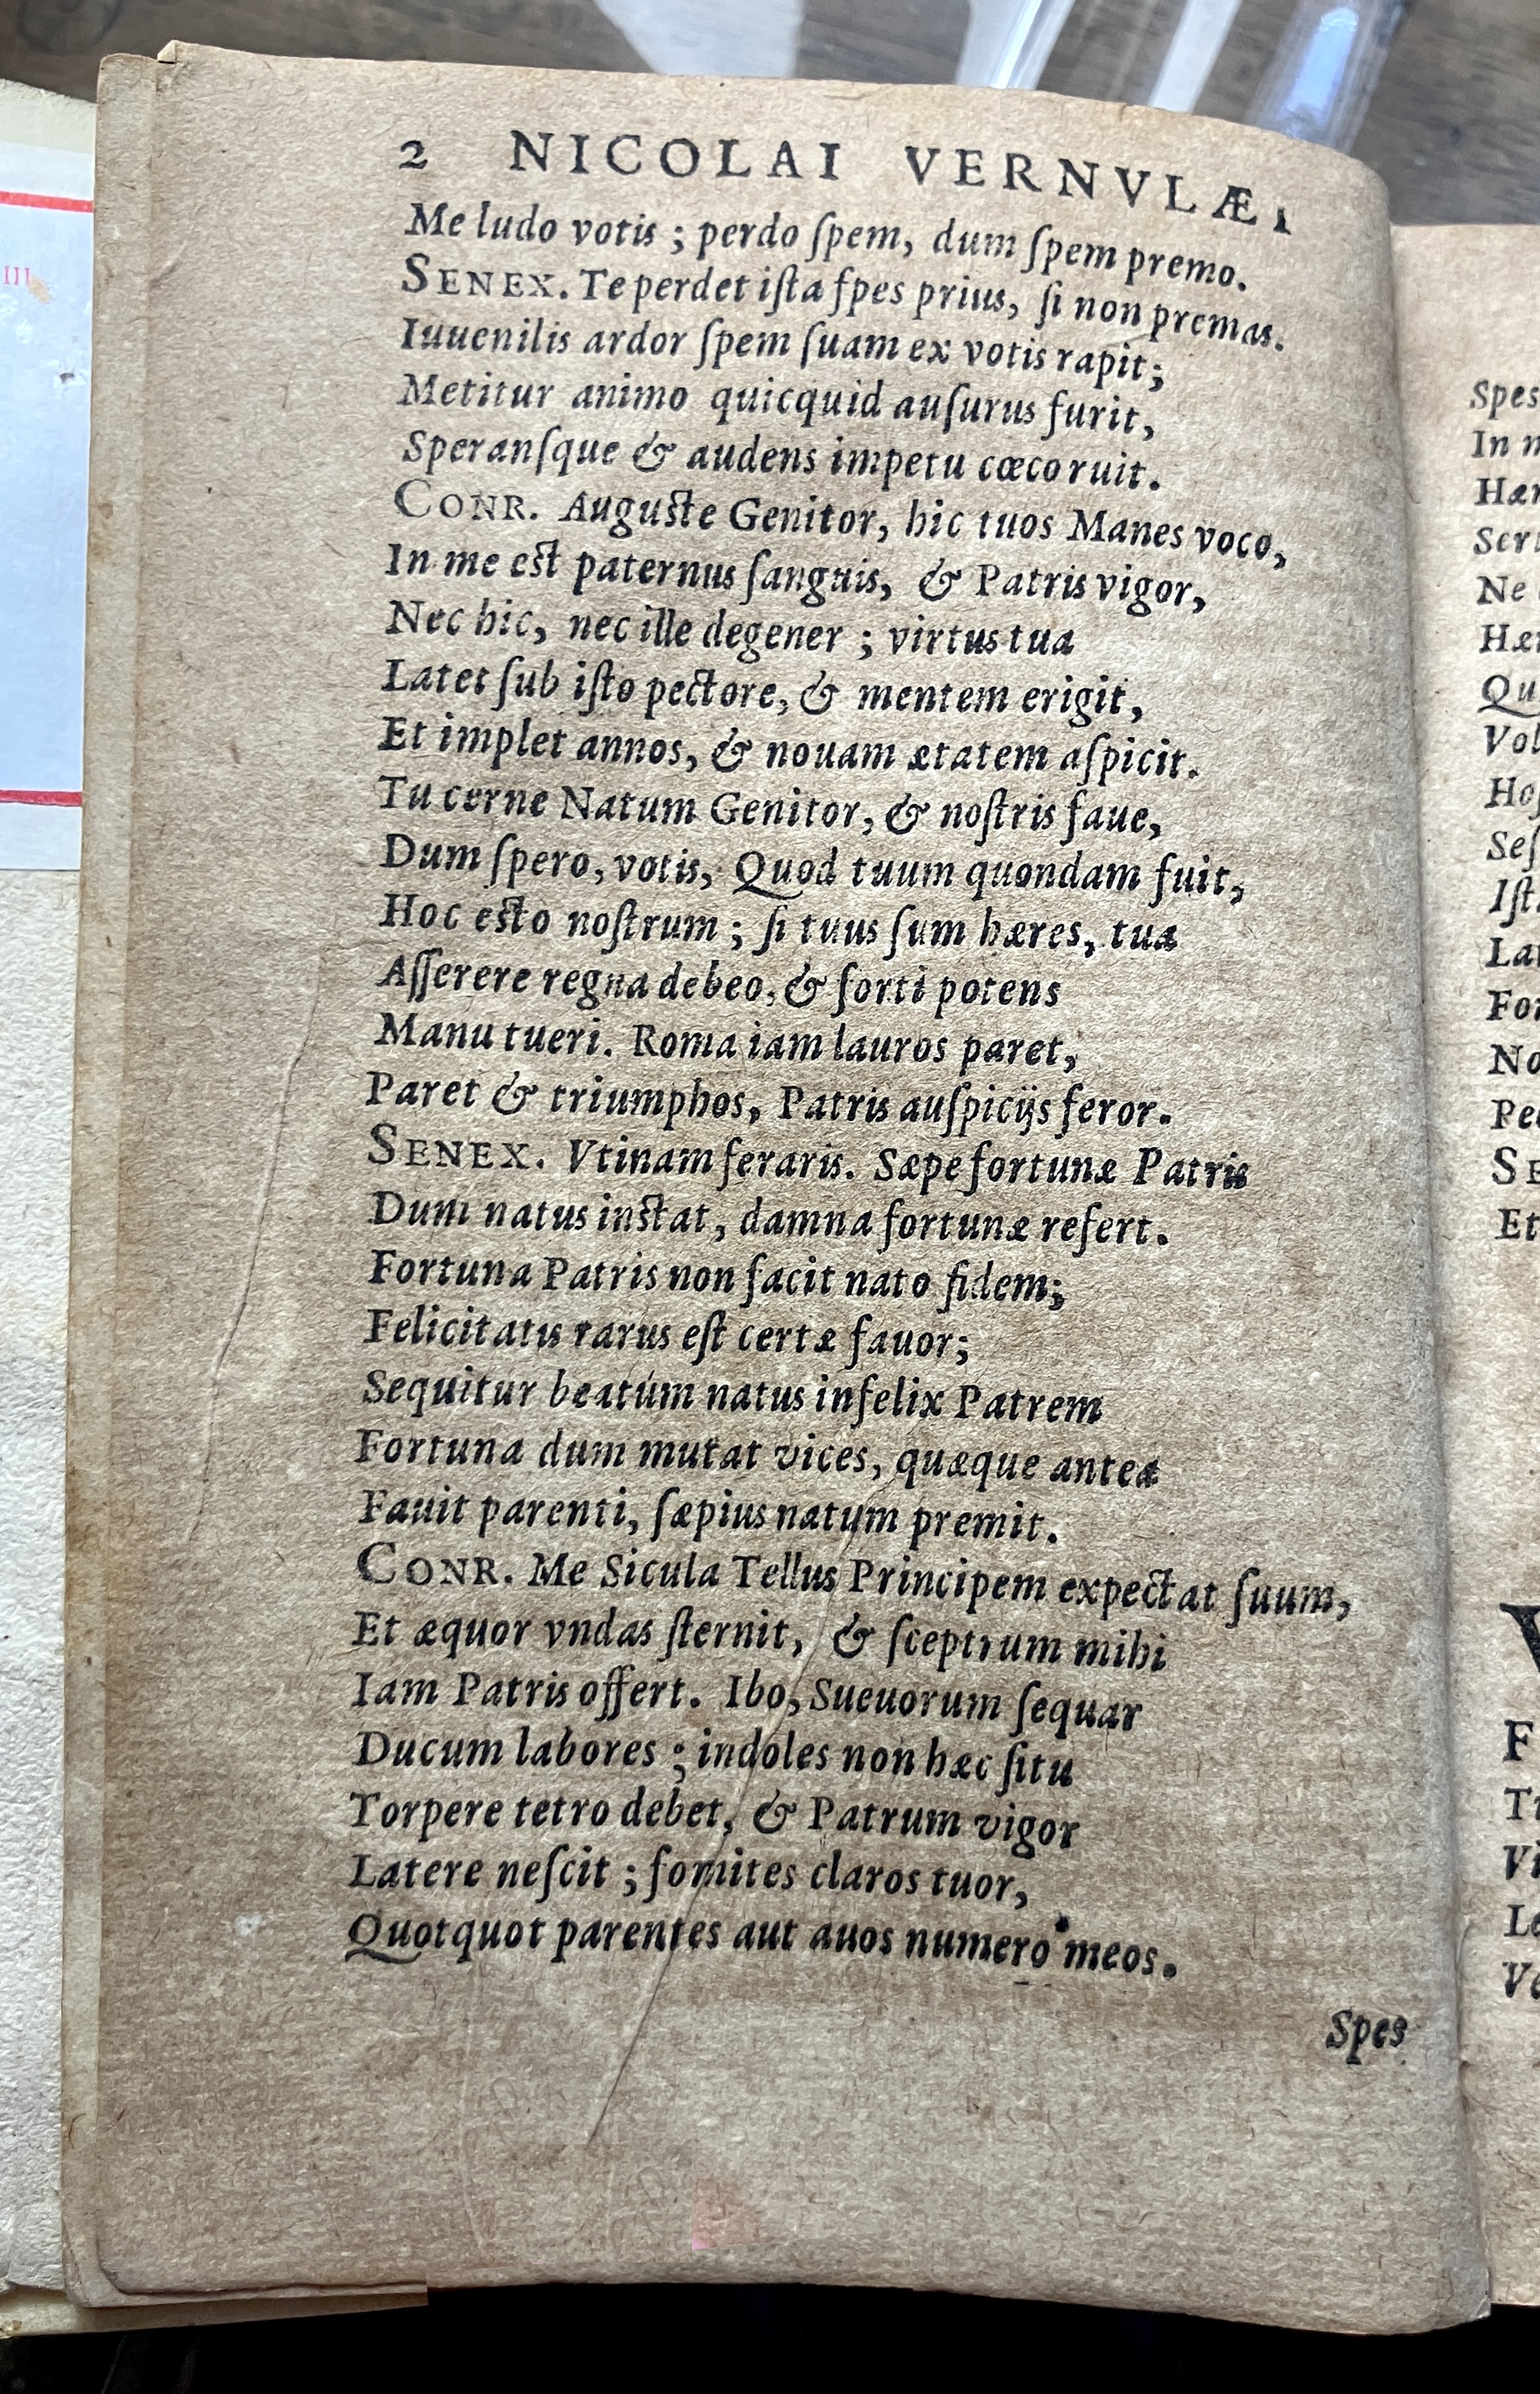 2 NICOLAI VERNVLÆI
Me ludo votis ; perdo ſpem, dum ſpem premo.
SENEX. Te perdet iſta ſpes prius, ſi non premas.
Iuuenilis ardor ſpem ſuam ex votis rapit;
Metitur animo quicquid auſurus furit,
Speranſque & audens impetu cœco ruit.
CONR. Auguſte Genitor, hic tuos Manes voco,
In me eſt paternus ſanguis, & Patris vigor,
Nec hic, nec ille degener ; virtus tua
Latet ſub iſto pectore, & mentem erigit,
Et implet annos, & nouam ætatem aſpicit.
Tu cerne Natum Genitor, & noſtris faue,
Dum ſpero, votis, Quod tuum quondam fuit,
Hoc eſto noſtrum ; ſi tuus ſum hæres, tua
Aſſerere regna debeo, & forti potens
Manu tueri. Roma iam lauros paret,
Paret & triumphos, Patris auſpicijs feror.
SENEX. Vtinam feraris. Sæpe fortunæ Patris
Dum natus inſtat, damna fortunæ refert.
Fortuna Patris non facit nato fidem;
Felicitatis rarus eſt certæ fauor;
Sequitur beatúm natus infelix Patrem
Fortuna dum mutat vices, quæque anteà
Fauit parenti, ſæpius natum premit.
CONR. Me Sicula Tellus Principem expectat ſuum,
Et æquor vndas ſternit, & ſceptrum mihi
Iam Patris offert. Ibo, Sueuorum ſequar
Ducum labores ; indoles non hæc ſitu
Torpere tetro debet, & Patrum vigor
Latere neſcit ; fomites claros tuor,
Quotquot parentes aut auos numero meos.
Spes
III
Spes
In
Ne
Qu
SE
Et